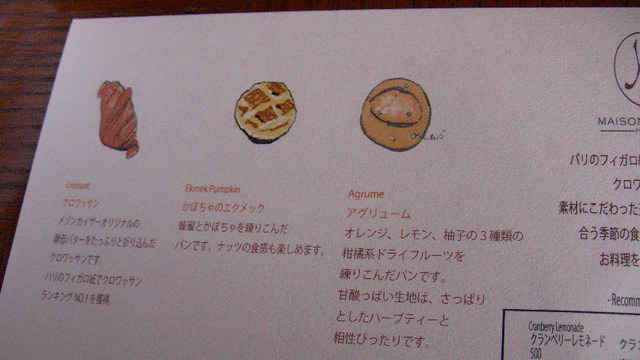 Croissant
クロワッサン
メゾンカイザーオリジナルの
発酵バターをたっぷりと折り込んだ
クロワッサンです。
パリのフィガロ紙でクロワッサン
ランキングNO.1を獲得。
Ekmek Pumpkin
かぼちゃのエクメック
蜂蜜とかぼちゃを練りこんだ
パンです。ナッツの食感も楽しめます。
Agrume
アグリューム
オレンジ、レモン、柚子の3種類の
柑橘系ドライフルーツを
練りこんだパンです。
甘酸っぱい生地は、さっぱり
としたハーブティーと
相性ぴったりです。
MAISON
パリのフィガロ紙
クロワ
素材にこだわった
合う季節の食
お料理を
- Recomm
Cranberry Lemonade
クランベリーレモネード クラ
500